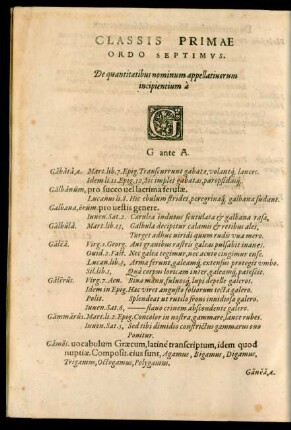 CLASSIS PRIMAE
ORDO SEPTIMVS.
De quantitatibus nominum appellatiuorum
incipientium à
G
G ante A.
Găbătă, æ. Mart. lib. 7. Epig. Transcurrunt gabatæ, volantq́; lances.
Idem li. 11. Epig. 12. Sic implet gabatas, paropsidasq́;
Galbănūm, pro succo vel lacrima ferulæ.
Lucanus li. 8. Hic ebulum stridet, peregrinaq́; galbana sudant.
Galbana, ōrum, pro uestis genere.
Iuuen. Sat. 2. Cærulea indutus scutulata & galbana rasa,
Mart. lib. 13. Galbula decipitur calamis & retibus ales,
Turget adhuc viridi quum rudis vua mero.
Gălĕă. Virg. 1. Georg. Aut grauibus rastris galeas pulsabit inanes.
Ouid. 2. Fast. Nec galea tegimur, nec acuto cingimur ense.
Lucan. lib. 3. Arma ferunt, galeamq́; extensus protegit vmbo.
Sil. lib. 1. Quà corpus loricam inter galeamq́; patescit.
Gălērŭs. Virg. 7. Aen. Bina manu, fuluosq́; lupi de pelle galeros.
Idem in Epig. Hac viret angusta foliorum tecta galero.
Polit. Splendeat ut rutilo frons inuidiosa galero.
Iuuen. Sat. 6. —flauo crinem abscondente galero.
Gāmmărŭs. Mart. li. 2. Epig. Concolor in nostra, gammare, lance rubes.
Iuuen. Sat. 5. Sed tibi dimidio constrictus gammarus ouo
Ponitur.
Gămŏs. uocabulum Græcum, latinè transcriptum, idem quod
nuptiæ. Composit. eius sunt, Agamus, Bigamus, Digamus,
Trigamus, Octogamus, Polygamus.
Gănĕă, æ.